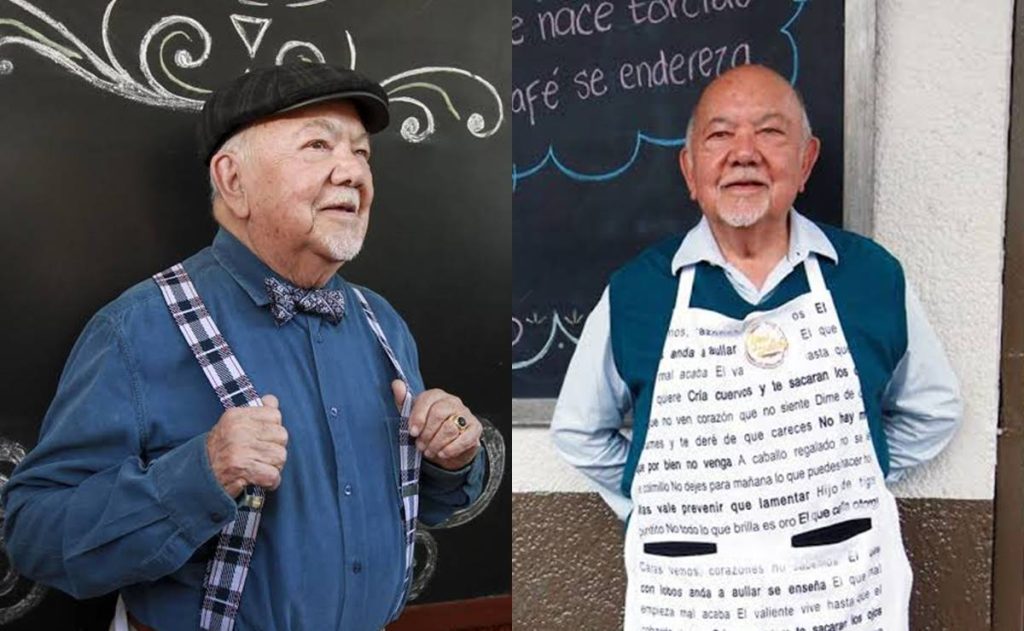 se nace torcido
café se endereza
os El
El que
anda a aullar
asta que
mal acaba El va
quere Cría cuervos y te sacaran los
que no ven corazón que no siente Dime de
umes y te deré de que careces No hay m
que por bien no venga A caballo regalado no se
colmillo No dejes para mañana lo que puedes hacer
Mas vale prevenir que lamentar Hijo de tigre
No todo lo que brilla es oro El que
Caras vemos, corazones no sabemos El que
con lobos anda a aullar se enseña El que mal
empieza mal acaba El valiente vive hasta que el
sacaran los ojos